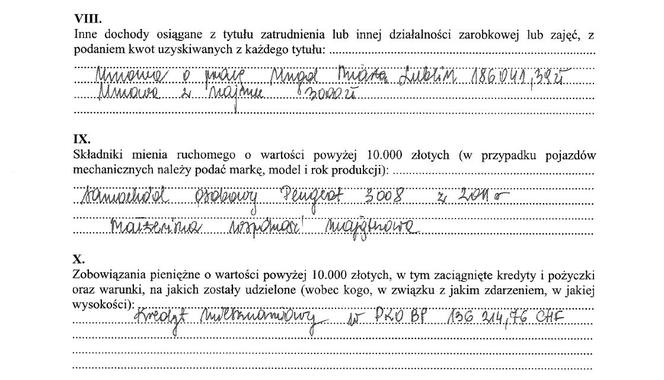 VIII.
Inne dochody osiągane z tytułu zatrudnienia lub innej działalności zarobkowej lub zajęć, z
podaniem kwot uzyskiwanych z każdego tytułu:
Umowa o pracę Urząd Miasta Lublin 186.041,39 zł
Umowa z najmu 3000 zł
IX.
Składniki mienia ruchomego o wartości powyżej 10.000 złotych (w przypadku pojazdów
mechanicznych należy podać markę, model i rok produkcji):
Samochód osobowy Peugeot 3008 z 2011 r
Małżeńska wspólność majątkowa
X.
Zobowiązania pieniężne o wartości powyżej 10.000 złotych, w tym zaciągnięte kredyty i pożyczki
oraz warunki, na jakich zostały udzielone (wobec kogo, w związku z jakim zdarzeniem, w jakiej
wysokości):
Kredyt mieszkaniowy w PKO BP 136 214,76 CHF